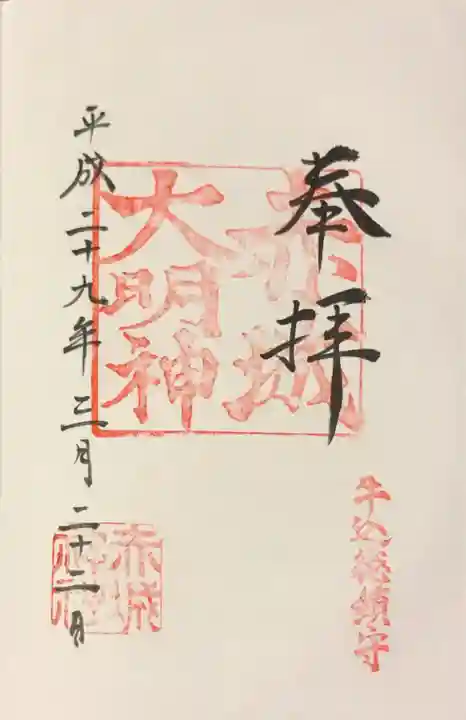 奉拝
赤城
大明神
牛込総鎮守
平成二十九年三月二十二日
赤城